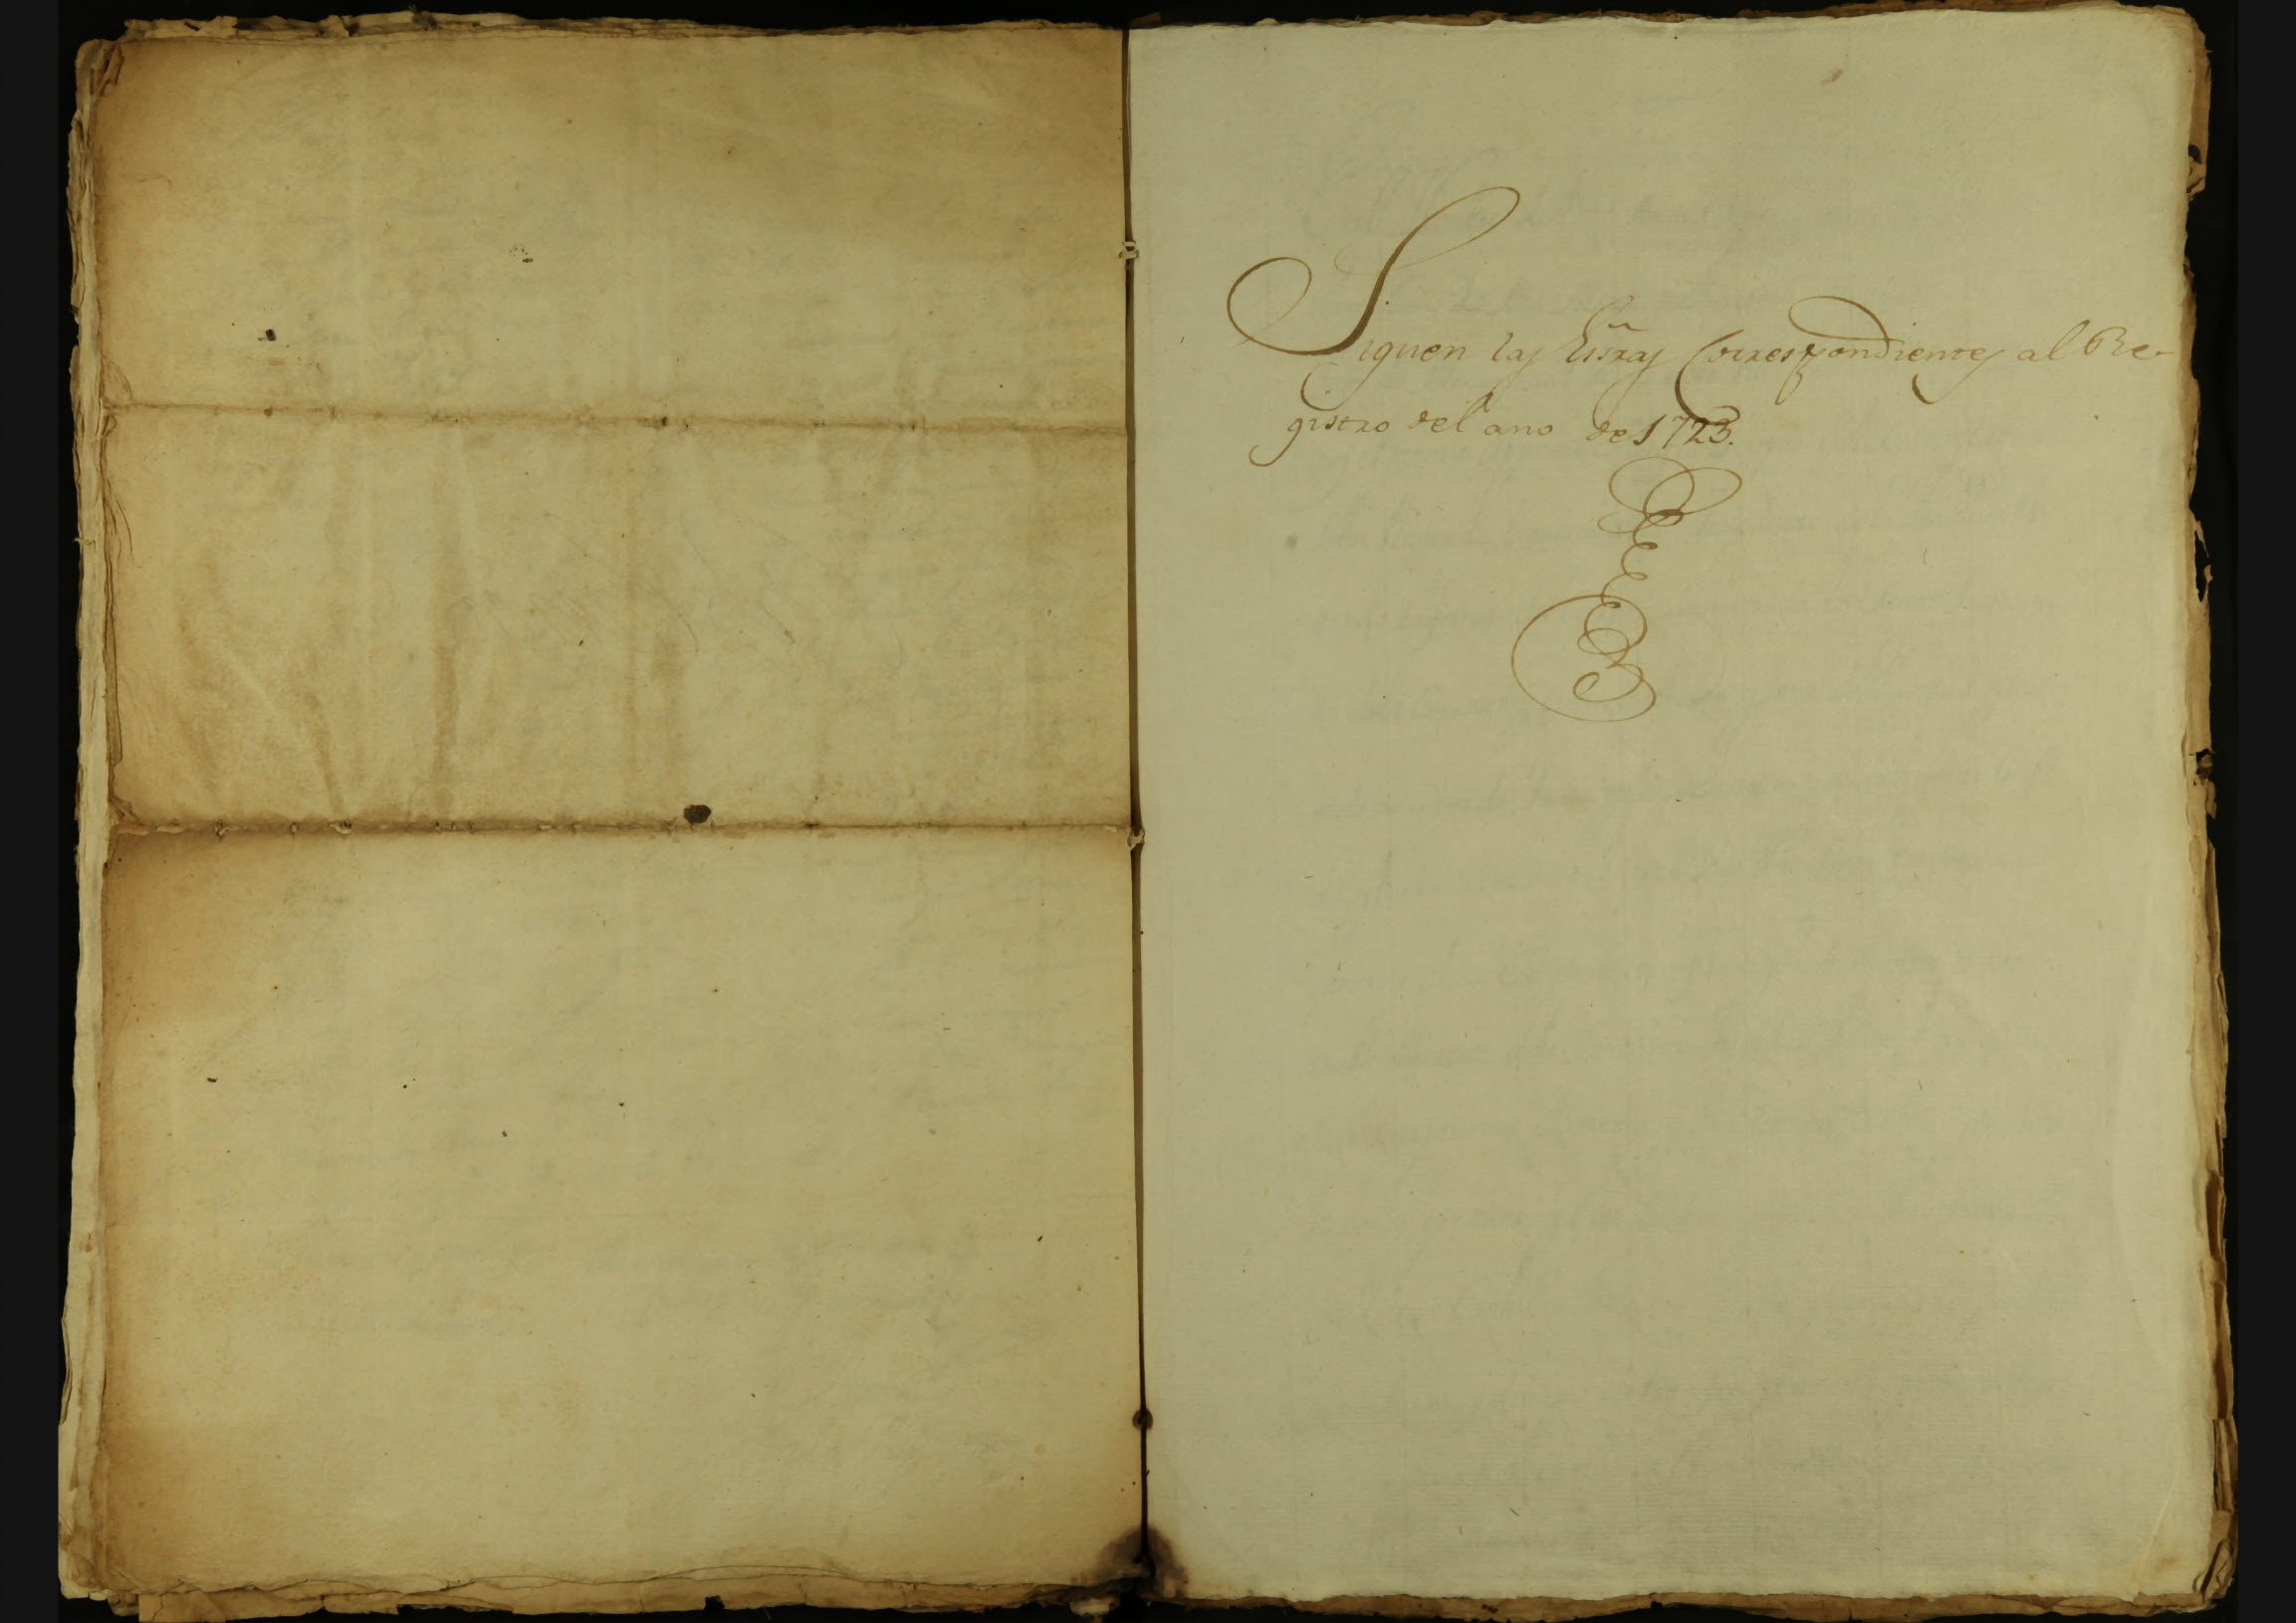 Siguen las Essras Correspondientes al Re-
gistro del año de 1723.